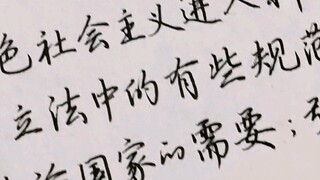 色社会主义进入
立法中的有些规范
国家的需要；